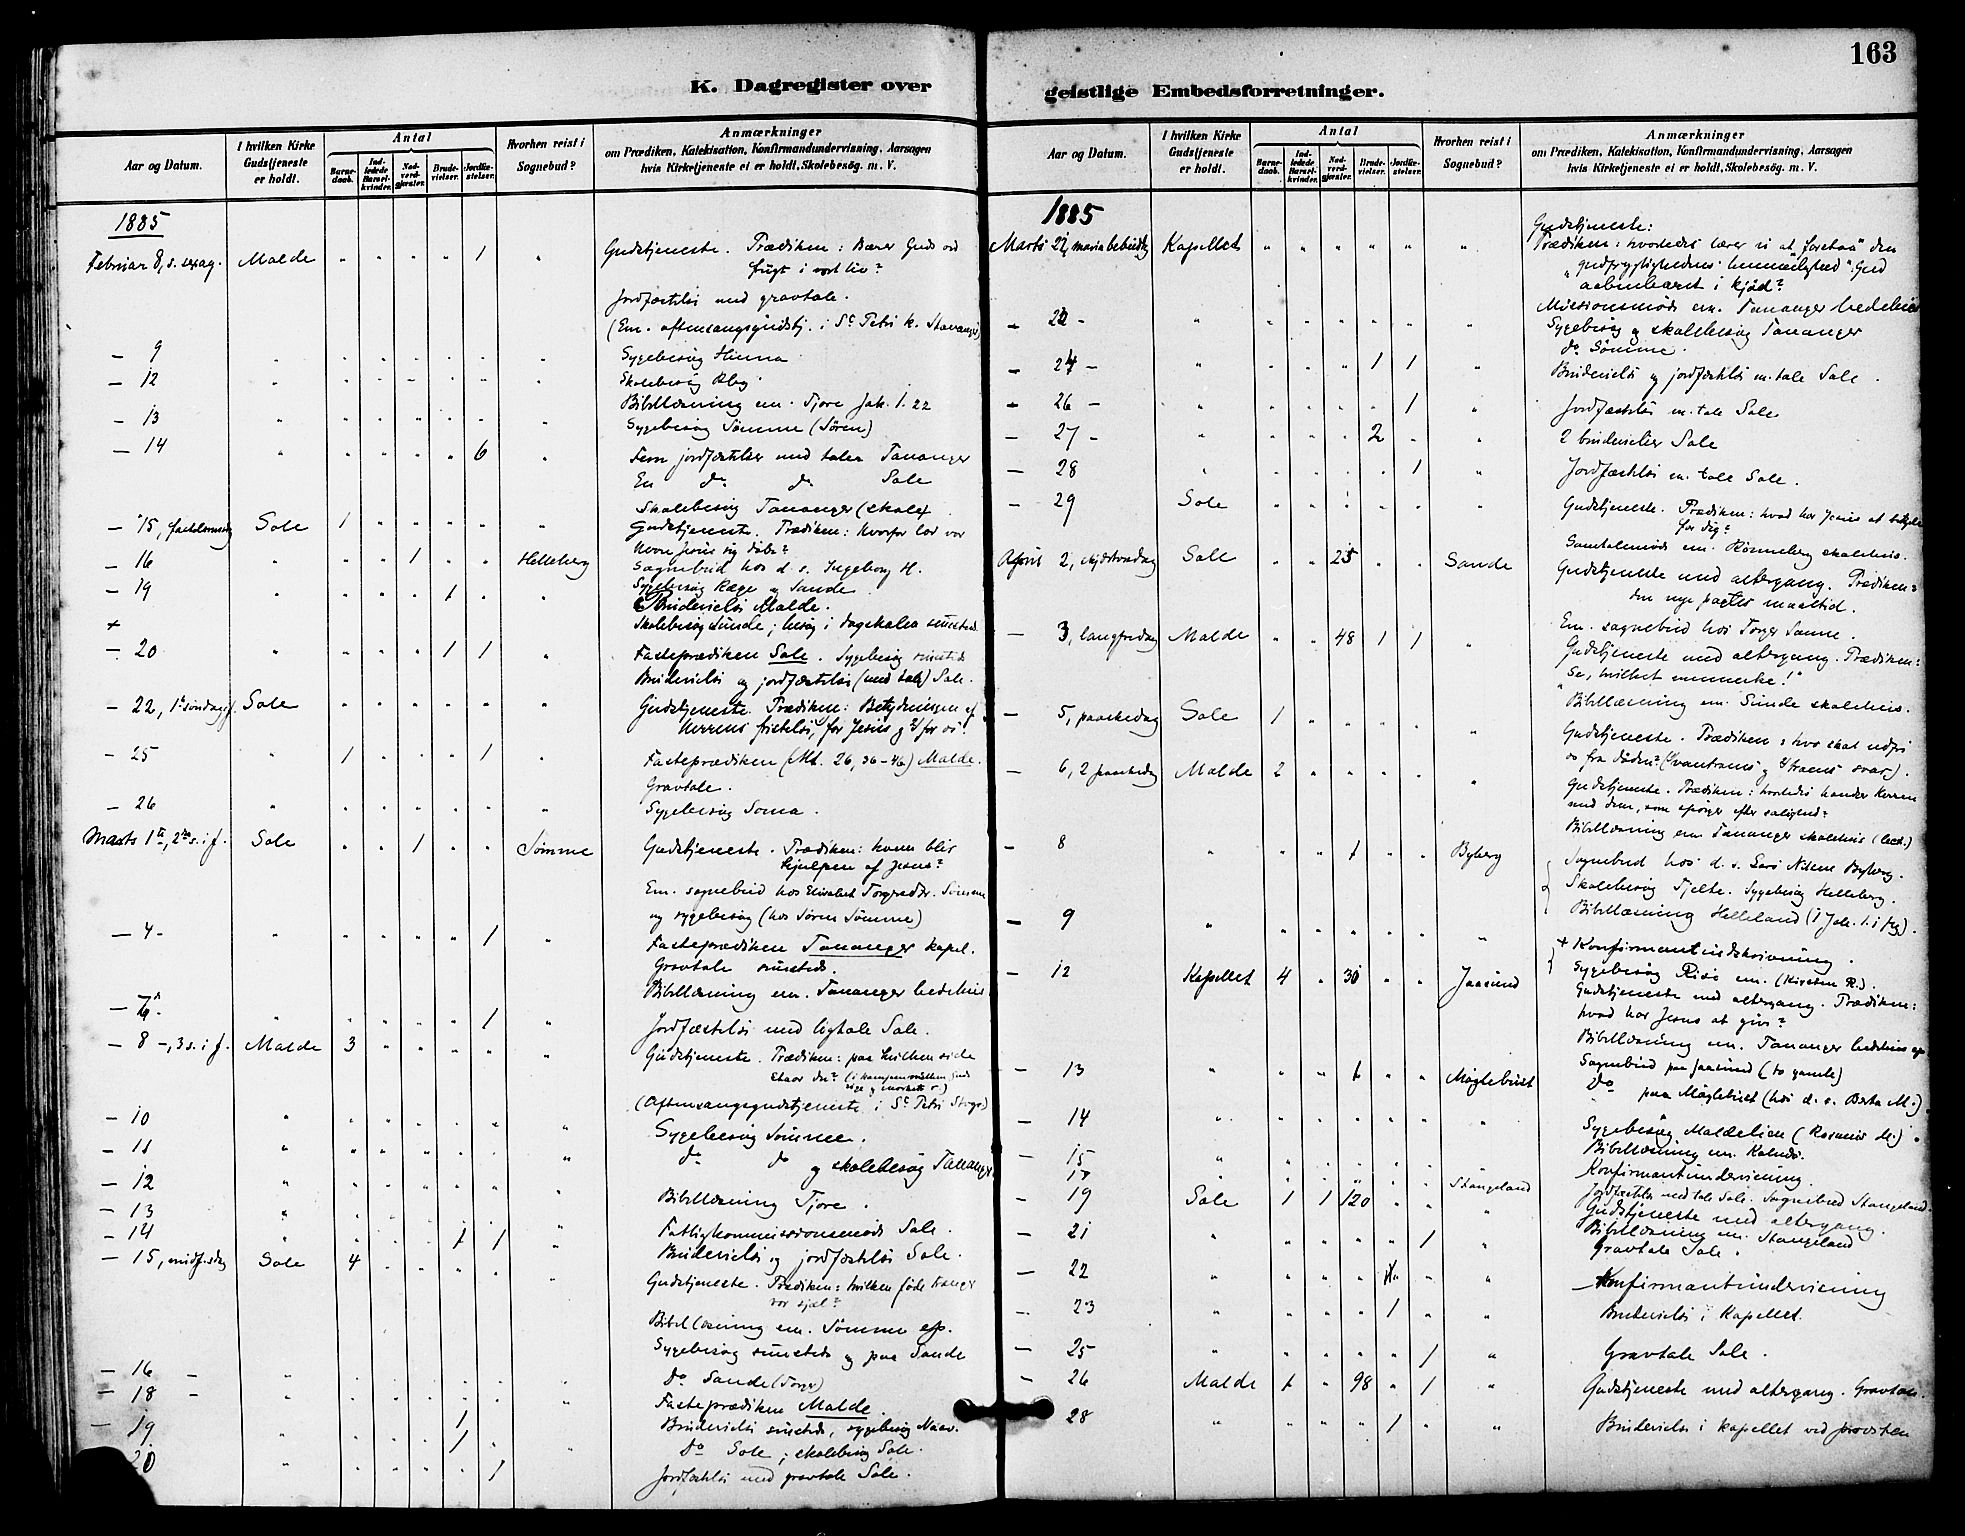 163
K. Dagregister over
geistlige Embedsforretninger.
Aar og Datum.
I hvilken Kirke Gudstjeneste er holdt.
Antal
Barnedaab.
Indledede Barselkvinder.
Nadverdgjæster.
Brudevielser.
Jordfæstelser.
Hvorhen reist i Sognebud?
Anmærkninger
om Prædiken, Katekisation, Konfirmandundervisning, Aarsagen
hvis Kirketjeneste ei er holdt, Skolebesøg. m. V.
1885
Februar 8, s. sexag. Malde " " " " 1 " Gudstjeneste. Prædiken: Bærer Guds ord
frugt i vort liv?
Jordfæstelse med gravtale.
(Em. aftensangsgudstj. i St Petri k. Stavanger)
— 9 Sygebesøg Hinna
— 12 Skolebesøg
— 13 Bibellæsning em. Tjore Jak. 1.22
Sygebesøg Sømme (Søren)
— 14 6 Fem jordfæstelser med taler Tananger
En do do Sole
Skolebesøg Tananger
— 15, fastelavnssøndag Sole 1 Gudstjeneste. Prædiken: Hvorfor lod vor
Herre Jesus sig døbe?
— 16 1 Helleberg Sognebud hos d. s. Ingeborg H.
— 19 1 Sygebesøg Ræge og Sande
Brudevielse Malde.
Skolebesøg Sunde; besøg i dagskolen sammesteds
— 20 1 1 Fasteprædiken Sole. Sygebesøg
Brudevielse og jordfæstelse (med tale) Sole.
— 22, 1s søndag i f. Sole Gudstjeneste. Prædiken: Betydningen af
Herrens fristelse, for Jesus og for os!
— 25 1 1 Fasteprædiken (Mt. 26, 36-46) Malde.
Gravtale.
— 26 Sygebesøg Soma.
Marts 1te, 2den s. i f. Sole 1 Sømme Gudstjeneste. Prædiken: hvem blir
hjulpen af Jesus?
Em. sognebud hos Elisabet Torgersdr. Sømme
og sygebesøg (hos Søren Sømme)
— 4 - 1 Fasteprædiken Tananger kapel.
Gravtale
Bibellæsning em. Tananger bedehus
1 Jordfæstelse med ligtale Sole.
— 8 -, 3 s. i f. Malde 3 Gudstjeneste. Prædiken: paa hvilken side
staar du?
(Aftensangsgudstjeneste i St Petri
— 10 Sygebesøg Sømme.
— 11 do do og skolebesøg Tananger
— 12 Bibellæsning Tjore.
— 13 Fattigkommissionsmøde Sole.
— 14 1 1 Brudevielse og jordfæstelse Sole.
— 15, midf.sdg Sole 4 Gudstjeneste. Prædiken: hvilken føde trænger
vor sjæl?
Bibellæsning em. Sømme
Sygebesøg og paa Sande
— 16 - do Sande (Torger)
— 18 - Fasteprædiken Malde.
— 19 1 Brudevielse sygebesøg
1 do Sole; skolebesøg Sole.
20 1 Jordfæstelse med gravtale Sole.
Aar og Datum.
I hvilken Kirke Gudstjeneste er holdt.
Antal
Barnedaab.
Indledede Barselkvinder.
Nadverdgjæster.
Brudevielser.
Jordfæstelser.
Hvorhen reist i Sognebud?
Anmærkninger
om Prædiken, Katekisation, Konfirmandundervisning, Aarsagen
hvis Kirketjeneste ei er holdt, Skolebesøg. m. V.
1885
Marts 22, maria bebudelse Kapellet Gudstjeneste:
Prædiken: hvorledes lærer vi at forstaa den
"gudfrygtighedens hemmelighed": Gud
aabenbaret i kjød?
Missionsmøde em. Tananger bedehus
Sygebesøg og skolebesøg Tananger
do Sømme.
— 24 - 1 1 Brudevielse og jordfæstelse m. tale Sole.
— 26 - 1 Jordfæstelse m. tale Sole
— 27 - 2 2 brudevielser Sole
— 28 1 Jordfæstelse m. tale Sole.
— 29 Sole Gudstjeneste. Prædiken: hvad har Jesus at betyde
for dig?
Samtalemøde em. Rønneberg skolehus.
April 2, skjærtorsdag Sole 25 Sande Gudstjeneste med altergang. Prædiken:
den nye pagtes maaltid.
Em. sognebud hos Torger Sanne.
— 3, langfredag Malde 48 1 1 Gudstjeneste med altergang. Prædiken:
"Se, hvilket menneske!"
Bibellæsning em. Sunde skolehus.
— 5, paaskedag Sole 1 Gudstjeneste. Prædiken: hvo skal udfri
os fra døden?
— 6, 2 paaskedag Malde 2 Gudstjeneste. Prædiken: hvorledes handler Herren
med dem, som spørger efter salighed?
Bibellæsning em. Tananger skolehus
— 8 1 Byberg Sognebud hos d. s. Lars Nilsen Byberg.
Skolebesøg Tjelte. Sygebesøg Helleberg.
— 9 Bibellæsning Helleland
Konfirmantindskrivning.
Sygebesøg Risø em. (Kirsten R.).
— 12 Kapellet 4 30 Jaasund Gudstjeneste med altergang. Prædiken:
hvad har Jesus at give?
Bibellæsning em. Tananger bedehus
Sognebud paa Jaasund (to gamle)
— 13 1 Møglebust do paa Møglebust (hos d. s. Berta M.)
— 14 Sygebesøg Maldelien (Rasmus M.)
— 15 Bibellæsning em. Kolnes.
Konfirmantundervisning.
Stangeland Jordfæstelse med tale Sole. Sognebud Stangeland.
— 19 Sole 1 1 120 Gudstjeneste med altergang.
Bibellæsning em. Stangeland
— 21 1 Gravtale Sole.
— 22 Konfirmantundervisning
— 23 1 Brudevielse i Kapellet.
— 25 1 Gravtale Sole.
— 26 Malde 1 98 1 Gudstjeneste med altergang. Gravtale.
— 28 1 Brudevielse i kapellet ved provsten